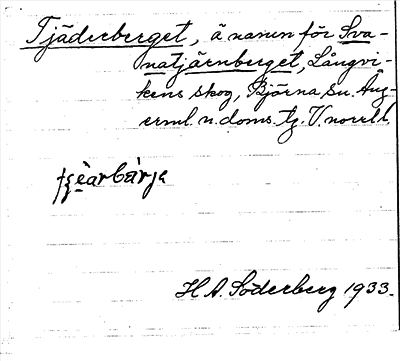 Tjäderberget, ä. namn för Sva-
natjärnberget, Långvi-
kens skog, Björna sn. Ång-
erml. n. doms. tg. V. norrl. l.
H A. Söderberg 1933.